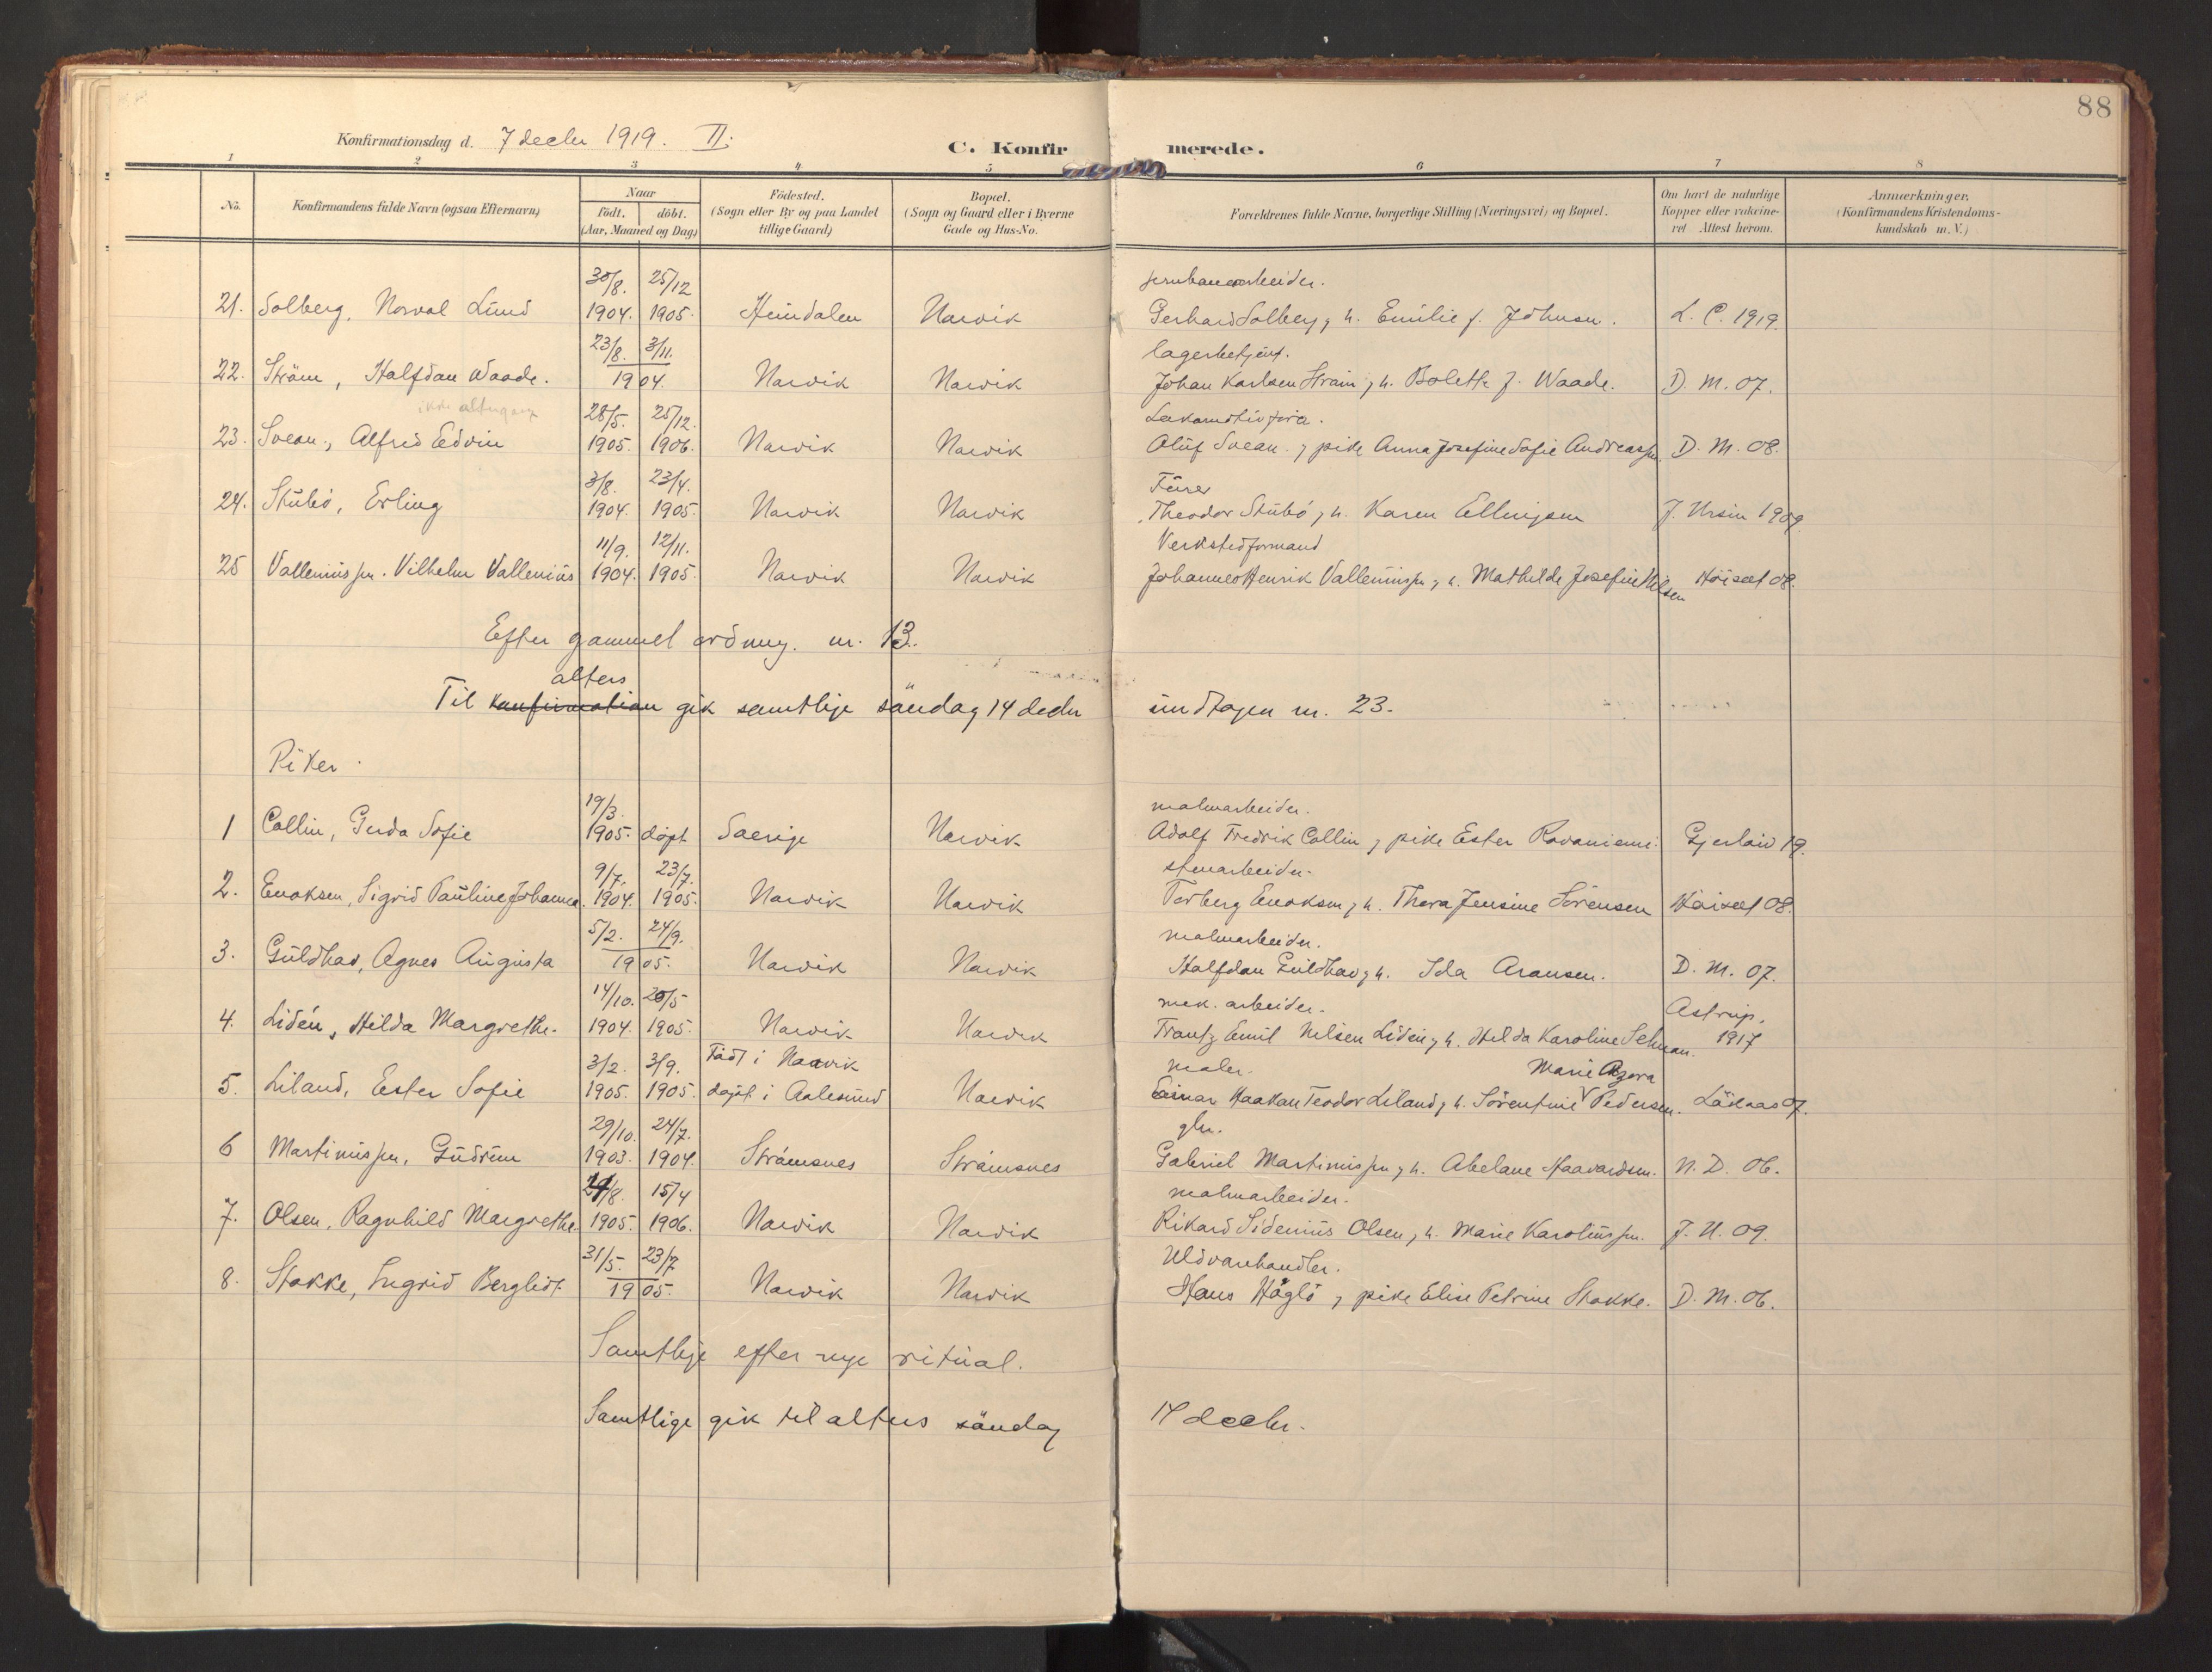 88
Konfirmationsdag d. 7 decbr 1919. II.
C. Konfirmerede.
1 2 3 4 5 6 7 8
No.
Konfirmandens fulde Navn (ogsaa Efternavn)
Naar
født. døbt.
(Aar, Maaned og Dag)
Födested.
(Sogn eller By og paa Landet
tillige Gaard)
Bopæl.
(Sogn og Gaard eller i Byerne
Gade og Hus-No.
Forældrenes fulde Navne, borgerlige Stilling (Næringsvei) og Bopæl.
Om havt de naturlige
Kopper eller vakcine-
ret Attest herom.
Anmærkninger.
(Konfirmandens Kristendoms-
kundskab m. V.)
30/8. 25/12 jernbanearbeider.
21. Solberg, Norval Lund 1904. 1905. Narvik Gerhard Solberg, h. Emilie f. Johnsen. L. C. 1919.
23/8. 3/11. lagerbetjent.
22. Ström, Halfdan Waade. 1904. Narvik Narvik Johan Karlsen Ström, h. Bolette f. Waade. D. M. 07.
ikke altergang 28/5. 25/12.
23. Svean, Alfred Edvin 1905. 1906. Narvik Narvik Oluf Svean, pike Anna Josefine Sofie Andreassen D. M. 08.
3/8. 23/4.
24. Stubö, Erling 1904. 1905. Narvik Narvik Theodor Stubö, h. Karen Ellingsen J. Ursin 1909
11/9. 12/11. Verkstedformand
25 Valleniussen. Vilhelm Vallenius 1904. 1905. Narvik Narvik Johannes Henrik Valleniussen, h. Mathilde Josefine Nilsen 08.
Efter gammel ordning. nr. 13.
alters
Til konfirmation gik samtlige söndag 14 decbr undtagen nr. 23.
Piker.
19/3. malmarbeider.
1 Collin, Gerda Sofie 1905. döpt Sverige Narvik Adolf Fredrik Collin, pike Ester Rovaniemi. 19.
9/7. 23/7. stenarbeider.
2. Enoksen, Sigrid Pauline Johanna. 1904. 1905. Narvik Narvik Torberg Enoksen, h. Thora Jensine Sörensen 08.
5/2. 24/9. malmarbeider.
3. Guldhav, Agnes Augusta 1905. Narvik Narvik Halfdan Guldhav, h. Ida Aronsen. D. M. 07.
14/10. 20/5 mek. arbeider. Astrup,
4. Lidén, Hilda Margrethe. 1904. 1905. Narvik Narvik Frantz Emil Nilsen Lidén, h. Hilda Karoline 1917
3/2. 3/9. Född i Narvik maler. Marie
5. Liland, Ester Sofie 1905. 1905. döpt i Aalesund Narvik Einar Haakon Teodor Liland, h. Sörentine Pedersen. 07.
29/10. 24/7. gbr.
6 Martinussen, Gudrun 1903. 1904. Strömsnes Strömsnes Gabriel Martinussen, h. Abelone Haavardsen. N. D. 06.
24/8. 15/4 malmarbeider.
7. Olsen, Ragnhild Margrethe 1905. 1906. Narvik Narvik Rikard Sidenius Olsen, h. Marie Karoliussen. J. U. 09.
31/5. 23/7 Uldvarehandler.
8. Stokke, Ingrid Bergliot 1905. Narvik Narvik Hans Höglö, pike Elise Petrine Stokke. D. M. 06.
Samtlige efter nye ritual.
Samtlige gik til alters söndag 14 decbr.